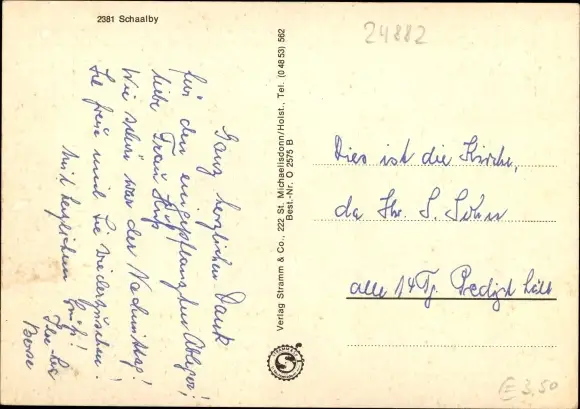 2381 Schaalby
Ganz herzlichen Dank
für den eingepflanzten Ableger,
liebe Frau
Wie schön war der Nachmittag!
Ich freue mich Sie wiederzusehen!
Mit herzlichem Gruß!
Verlag Stramm & Co., 222 St. Michaelisdonn/Holst., Tel. (0 48 53) 562
Best.-Nr. O 2575 B
24882
Dies ist die Kirche,
da Ihr S. Sohn
alle 14 Tg. Predigt hält
3,50